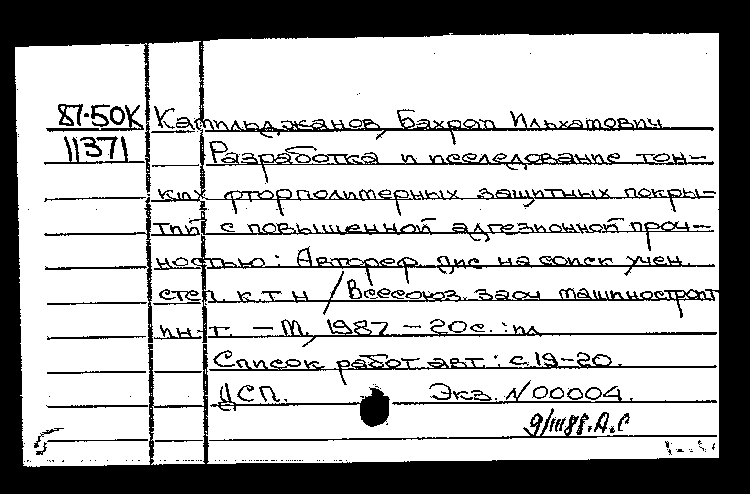 87-50К Камильджанов, Бахром Ильхамович
11371 Разработка и исследование тон-
ких фторполимерных защитных покры-
тий с повышенной адгезионной проч-
ностью: Автореф. дис на соиск учен.
степ. к.т.н / Всесоюз. заоч машиностроит
ин-т. - М., 1987 - 20с.: ил
Список работ авт.: с.19-20.
ДСП. Экз. N 00004.
9/III88. А.С